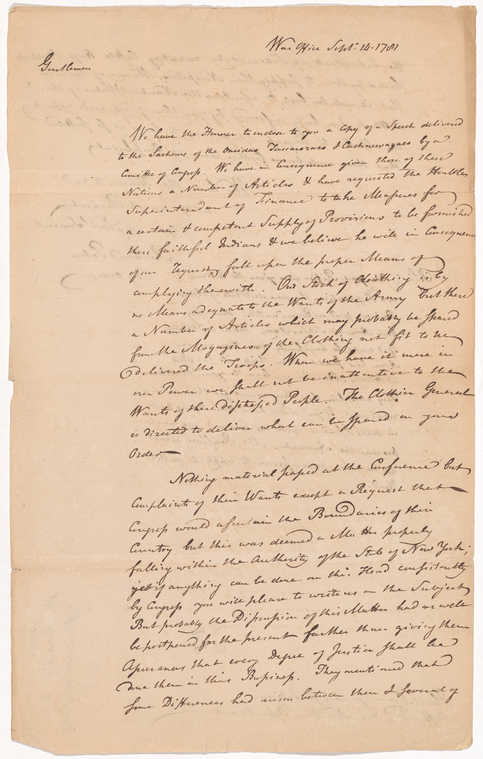 War Office Sept. 14. 1781
Gentlemen
We have the Honour to enclose to you a Copy of a Speech delivered
to the Sachems of the Oneidas Tuscaroraes & Cachnewagaes by a
Comittee of Congress. We have in Consequence given those of these
Nations a Number of Articles & have requested the Honble
Superintendant of Finance to take Measures for
a certain & competent Supply of Provisions to be furnished
these faithful Indians & we believe he will in Consequence
of our Request fall upon the proper Means of
complying therewith. Our Stock of Cloathing is by
no Means adequate to the Wants of the Army but there
a Number of Articles which may probably be spared
from the Magazines of other Clothing not fit to be
delivered the Troops. When we have it more in
our Power we shall not be inattentive to the
Wants of these distressed People. The Clothier General
is directed to deliver what can be spared on your
Order
Nothing material passed at the Conference but
Complaints of their Wants except a Request that
Congress would ascertain the Boundaries of their
Country but this was deemed a Matter properly
falling within the Authority of the State of New York;
yet if anything can be done on this Head consistently
by Congress you will please to write us on the Subject
But probably the Discussion of this Matter had as well
be postponed for the present farther than giving them
Assurances that every Degree of Justice shall be
done them in this Business. They mentioned that
some Differences had arisen between them & several of